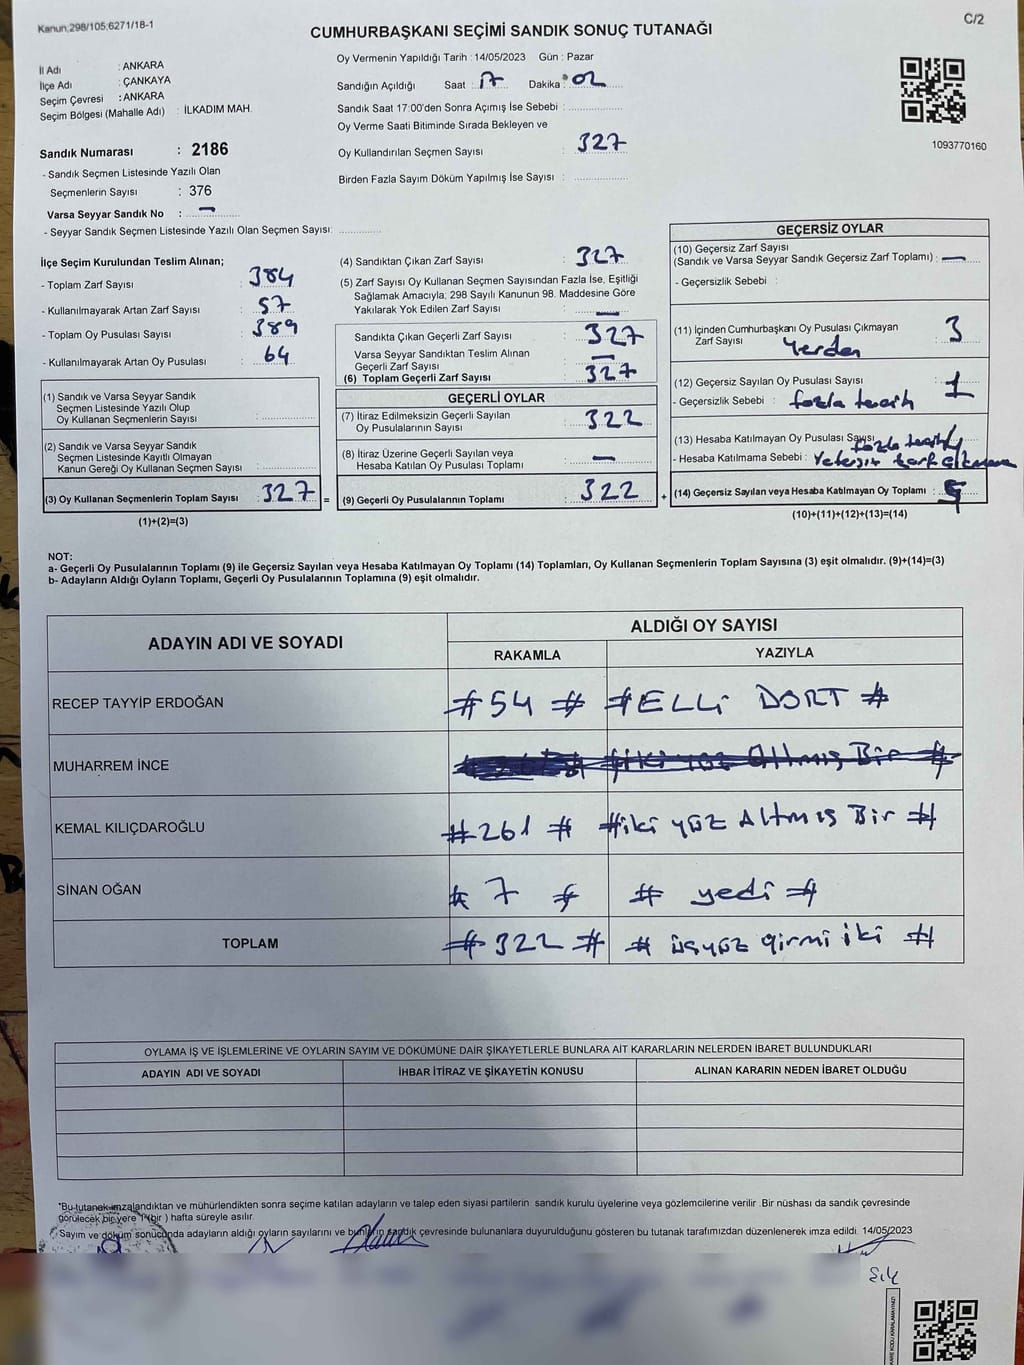 Kanun;298/105;6271/18-1
C/2
CUMHURBAŞKANI SEÇİMİ SANDIK SONUÇ TUTANAĞI
İl Adı : ANKARA
İlçe Adı : ÇANKAYA
Seçim Çevresi : ANKARA
Seçim Bölgesi (Mahalle Adı) : İLKADIM MAH.
Sandık Numarası : 2186
- Sandık Seçmen Listesinde Yazılı Olan
Seçmenlerin Sayısı : 376
Varsa Seyyar Sandık No : —
- Seyyar Sandık Seçmen Listesinde Yazılı Olan Seçmen Sayısı:
Oy Vermenin Yapıldığı Tarih : 14/05/2023 Gün : Pazar
Sandığın Açıldığı Saat : 17 Dakika : 02
Sandık Saat 17:00'den Sonra Açımış İse Sebebi :
Oy Verme Saati Bitiminde Sırada Bekleyen ve
Oy Kullandırılan Seçmen Sayısı : 327
Birden Fazla Sayım Döküm Yapılmış İse Sayısı :
1093770160
İlçe Seçim Kurulundan Teslim Alınan;
- Toplam Zarf Sayısı : 384
- Kullanılmayarak Artan Zarf Sayısı : 57
- Toplam Oy Pusulası Sayısı : 389
- Kullanılmayarak Artan Oy Pusulası : 64
(1) Sandık ve Varsa Seyyar Sandık
Seçmen Listesinde Yazılı Olup
Oy Kullanan Seçmenlerin Sayısı :
(2) Sandık ve Varsa Seyyar Sandık
Seçmen Listesinde Kayıtlı Olmayan
Kanun Gereği Oy Kullanan Seçmen Sayısı :
(3) Oy Kullanan Seçmenlerin Toplam Sayısı : 327 =
(1)+(2)=(3)
(4) Sandıktan Çıkan Zarf Sayısı : 327
(5) Zarf Sayısı Oy Kullanan Seçmen Sayısından Fazla İse, Eşitliği
Sağlamak Amacıyla; 298 Sayılı Kanunun 98. Maddesine Göre
Yakılarak Yok Edilen Zarf Sayısı : —
Sandıkta Çıkan Geçerli Zarf Sayısı : 327
Varsa Seyyar Sandıktan Teslim Alınan
Geçerli Zarf Sayısı : —
(6) Toplam Geçerli Zarf Sayısı : 327
GEÇERLİ OYLAR
(7) İtiraz Edilmeksizin Geçerli Sayılan
Oy Pusulalarının Sayısı : 322
(8) İtiraz Üzerine Geçerli Sayılan veya
Hesaba Katılan Oy Pusulası Toplamı : —
(9) Geçerli Oy Pusulalarının Toplamı : 322 +
GEÇERSİZ OYLAR
(10) Geçersiz Zarf Sayısı
(Sandık ve Varsa Seyyar Sandık Geçersiz Zarf Toplamı) : —
- Geçersizlik Sebebi :
(11) İçinden Cumhurbaşkanı Oy Pusulası Çıkmayan
Zarf Sayısı 3
Yerden
(12) Geçersiz Sayılan Oy Pusulası Sayısı : 1
- Geçersizlik Sebebi : fazla tercih
(13) Hesaba Katılmayan Oy Pusulası Sayısı fazla tercih
- Hesaba Katılmama Sebebi :
(14) Geçersiz Sayılan veya Hesaba Katılmayan Oy Toplamı : 5
(10)+(11)+(12)+(13)=(14)
NOT:
a- Geçerli Oy Pusulalarının Toplamı (9) ile Geçersiz Sayılan veya Hesaba Katılmayan Oy Toplamı (14) Toplamları, Oy Kullanan Seçmenlerin Toplam Sayısına (3) eşit olmalıdır. (9)+(14)=(3)
b- Adayların Aldığı Oyların Toplamı, Geçerli Oy Pusulalarının Toplamına (9) eşit olmalıdır.
ADAYIN ADI VE SOYADI
ALDIĞI OY SAYISI
RAKAMLA YAZIYLA
RECEP TAYYİP ERDOĞAN # 54 # # ELLİ DORT #
MUHARREM İNCE # iki yüz Altmış Bir #
KEMAL KILIÇDAROĞLU # 261 # # iki yüz Altmış Bir #
SİNAN OĞAN # 7 # # yedi #
TOPLAM # 322 # # üçyüz yirmi iki #
OYLAMA İŞ VE İŞLEMLERİNE VE OYLARIN SAYIM VE DÖKÜMÜNE DAİR ŞİKAYETLERLE BUNLARA AİT KARARLARIN NELERDEN İBARET BULUNDUKLARI
ADAYIN ADI VE SOYADI İHBAR İTİRAZ VE ŞİKAYETİN KONUSU ALINAN KARARIN NEDEN İBARET OLDUĞU
*Bu tutanak imzalandıktan ve mühürlendikten sonra seçime katılan adayların ve talep eden siyasi partilerin sandık kurulu üyelerine veya gözlemcilerine verilir. Bir nüshası da sandık çevresinde
görülecek bir yere 1 (bir) hafta süreyle asılır.
Sayım ve döküm sonucunda adayların aldığı oyların sayılarını ve bunların sandık çevresinde bulunanlara duyurulduğunu gösteren bu tutanak tarafımızdan düzenlenerek imza edildi. 14/05/2023